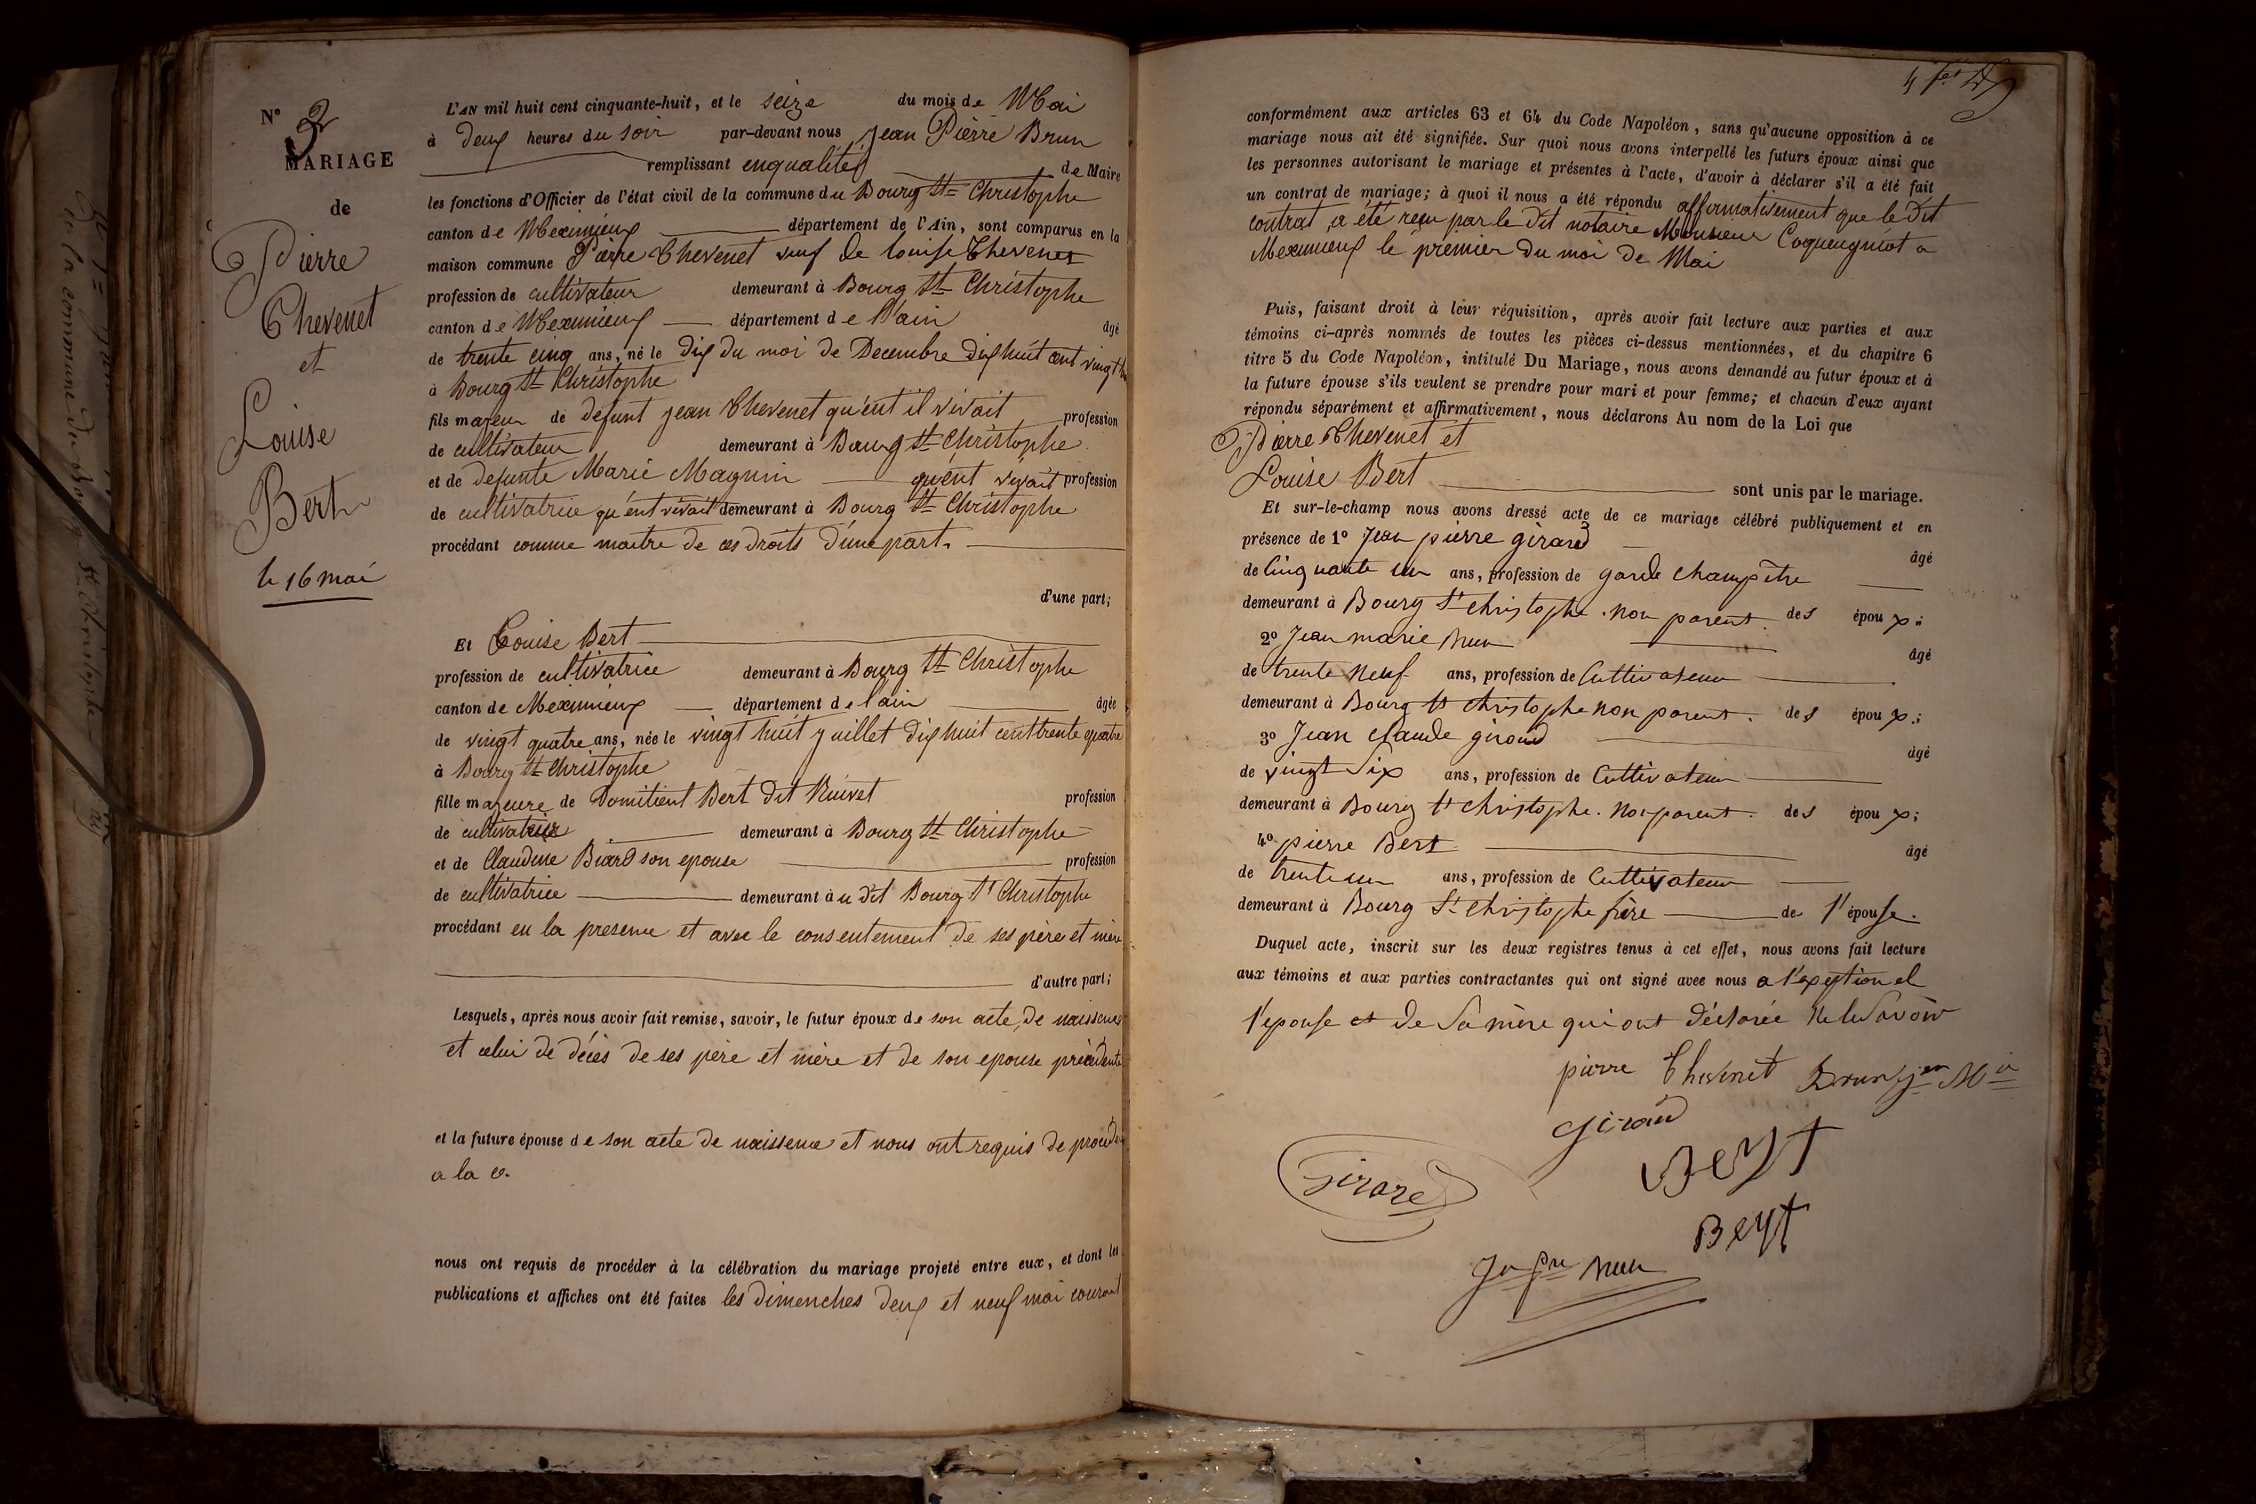 N° 3
MARIAGE
de
Pierre
Chevenet
et
Louise
Bert
le 16 mai
L'AN mil huit cent cinquante-huit, et le seize du mois de Mai
à deux heures du soir par-devant nous Jean Pierre Brun
remplissant enqualité de Maire
les fonctions d'Officier de l'état civil de la commune du Bourg St Christophe
canton de Meximieux département de l'Ain, sont comparus en la
maison commune Pierre Chevenet veuf de Louise Thevenet
profession de cultivateur demeurant à Bourg St Christophe
canton de Meximieux département de l'ain âgé
de trente cinq ans, né le dix du moi de Decembre dix huit cent vingt
à Bourg St Christophe
fils majeur de defunt Jean Chevenet qu'ent il vivait profession
de cultivateur demeurant à Bourg St Christophe
et de defunte Marie Magnin qu'ent vivait profession
de cultivatrice qu'ent vivait demeurant à Bourg St Christophe
procédant comme maitre de ces droits d'une part.
d'une part;
Et Louise Bert
profession de cultivatrice demeurant à Bourg St Christophe
canton de Meximieux département de l'ain âgée
de vingt quatre ans, née le vingt huit juillet dix huit cent trente quatre
à Bourg St Christophe
fille majeure de Domitient Bert dit Ruivet profession
de cultivateur demeurant à Bourg St Christophe
et de Claudine Biard son epouse profession
de cultivatrice demeurant à u dit Bourg St Christophe
procédant en la presence et avec le consentement de ses père et mère
d'autre part;
Lesquels, après nous avoir fait remise, savoir, le futur époux de son acte de naissence
et celui de décès de ses père et mère et de son epouse précédente
et la future épouse de son acte de naissence et nous ont requis de proceder
a la c.
nous ont requis de procéder à la célébration du mariage projeté entre eux, et dont les
publications et affiches ont été faites les dimenches deux et neuf mai courant
conformément aux articles 63 et 64 du Code Napoléon, sans qu'aucune opposition à ce
mariage nous ait été signifiée. Sur quoi nous avons interpellé les futurs époux ainsi que
les personnes autorisant le mariage et présentes à l'acte, d'avoir à déclarer s'il a été fait
un contrat de mariage; à quoi il nous a été répondu affirmativement que le dit
contrat a été reçu par le dit notaire Monsieur Coqueugniot a
Meximieux le premier du moi de Mai
Puis, faisant droit à leur réquisition, après avoir fait lecture aux parties et aux
témoins ci-après nommés de toutes les pièces ci-dessus mentionnées, et du chapitre 6
titre 5 du Code Napoléon, intitulé Du Mariage, nous avons demandé au futur époux et à
la future épouse s'ils veulent se prendre pour mari et pour femme; et chacun d'eux ayant
répondu séparément et affirmativement, nous déclarons Au nom de la Loi que
Pierre Chevenet et
Louise Bert sont unis par le mariage.
Et sur-le-champ nous avons dressé acte de ce mariage célébré publiquement et en
présence de 1° Jean pierre girard âgé
de Cinquante un ans, profession de garde champêtre
demeurant à Bourg St christophe. non parent des époux;
2° Jean marie Brun âgé
de trente Neuf ans, profession de Cultivateur
demeurant à Bourg St christophe non parent. des époux;
3° Jean claude giroud âgé
de vingt Six ans, profession de Cultivateur
demeurant à Bourg St christophe. Non parent. des époux;
4° pierre Bert âgé
de trente un ans, profession de Cultivateur
demeurant à Bourg St christophe frère de l'épouse.
Duquel acte, inscrit sur les deux registres tenus à cet effet, nous avons fait lecture
aux témoins et aux parties contractantes qui ont signé avec nous a l'exeption de
l'epouse et de Sa mère qui ont déclarée Ne le Savoir
pierre Chevenet Brun jn Mie
Giroud
Girard
Bert
Bert
Jn pre Brun